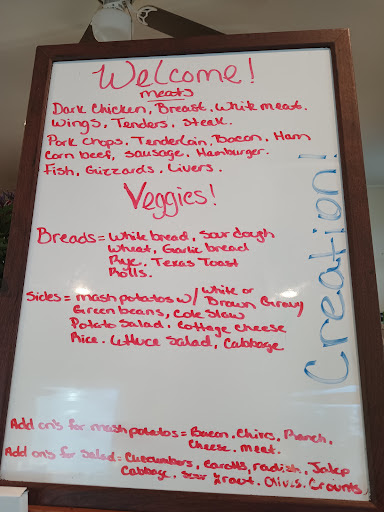 Welcome!
meats
Dark Chicken, Breast. White meat.
Wings, Tenders, Steak.
Pork Chops, Tenderloin, Bacon, Ham
Corn beef, Sausage, Hamburger.
Fish, Gizzards, Livers.
Veggies!
Breads = White bread, Sour dough
Wheat, Garlic bread
Rye, Texas Toast
Rolls.
Sides = mash potatos w/ White or
Brown Gravy
Green beans, Cole Slaw
Potato Salad. Cottage Cheese
Rice. Lettuce Salad, Cabbage
Add on's for mash potatos = Bacon. Chives, Ranch,
Cheese. meat.
Add on's for Salad = Cucumbers, Carotts, radish, Jalep
Cabbage. Sour Kraut. Olives. Crounts.
Creation!